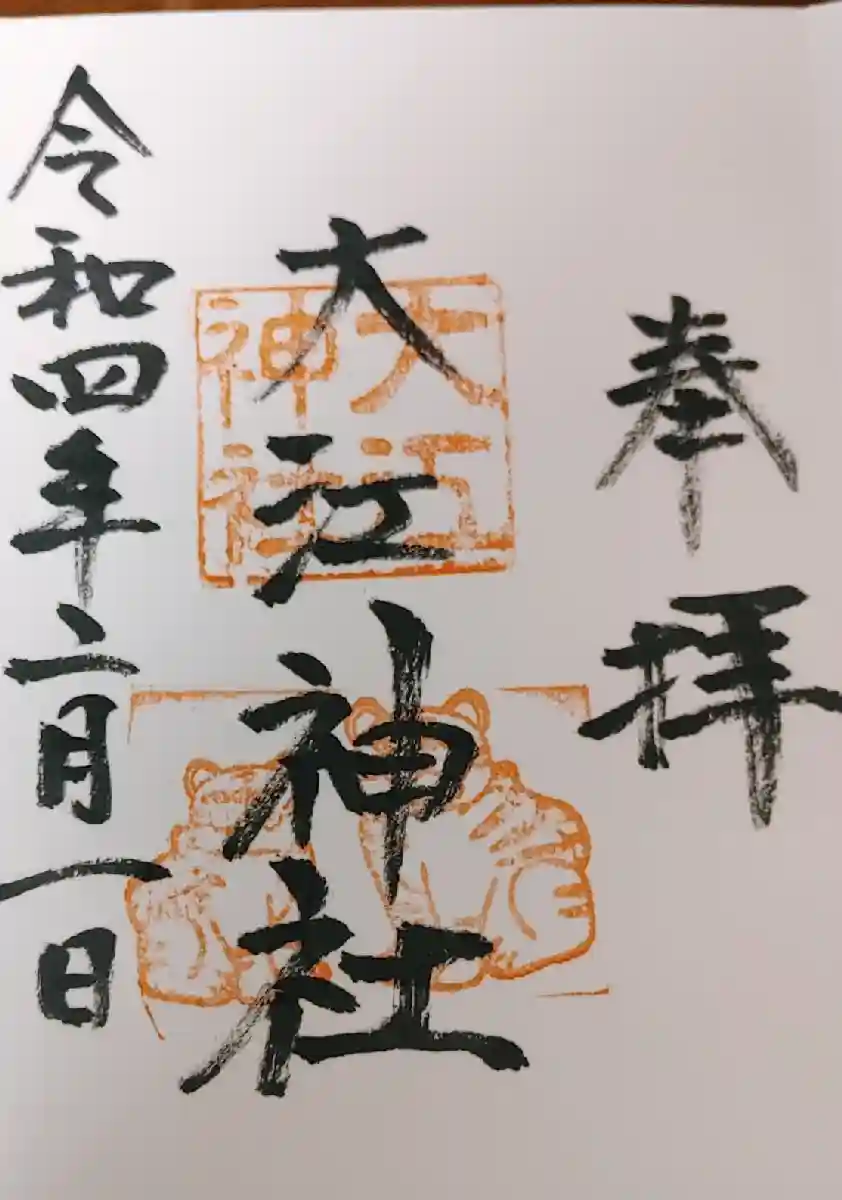 奉拝
大江神社
大江
神社
令和四年二月一日